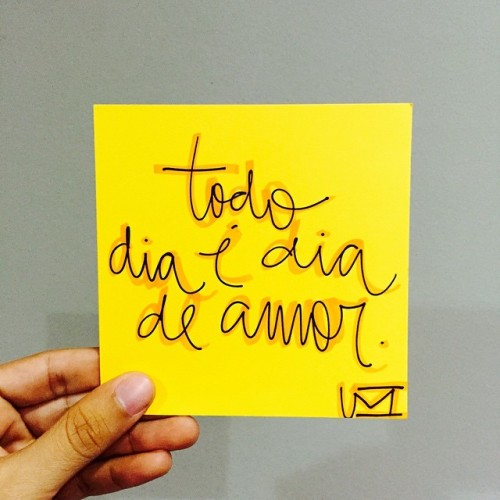 todo
dia é dia
de amor.